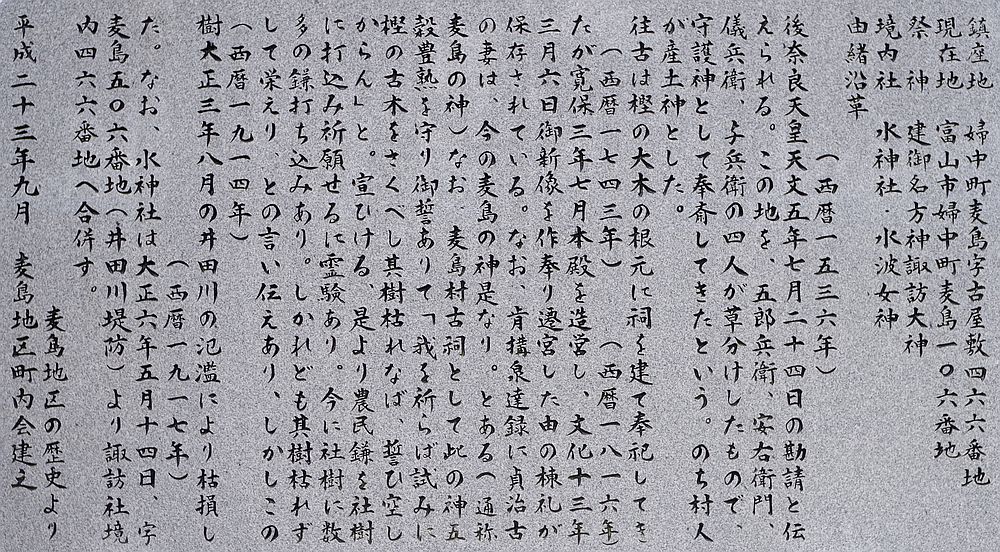 鎮座地　婦中町麦島字古屋敷四六六番地
現在地　富山市婦中町麦島一〇六番地
祭　神　建御名方神諏訪大神
境内社　水神社・水波女神
由緒沿革
（西暦一五三六年）
後奈良天皇天文五年七月二十四日の勘請と伝
えられる。この地を、五郎兵衛、安右衛門、
儀兵衛、与兵衛の四人が草分けしたもので、
守護神として奉斎してきたという。のち村人
が産土神とした。
往古は樫の大木の根元に祠を建て奉祀してき
（西暦一七四三年）　（西暦一八一六年）
たが寛保三年七月本殿を造営し、文化十三年
三月六日御新像を作奉り遷宮した由の棟札が
保存されている。なお、肯搆泉達録に貞治古
の妻は、今の麦島の神是なり。とある（通称
麦島の神）なお、麦島村古祠として此の神五
穀豊熟を守り御誓ありて「我を祈らば試みに
樫の古木をさくべし其樹枯れなば、誓ひ空し
からん」と。宣ひける、是より農民鎌を社樹
に打込み祈願せるに霊験あり。今に社樹に数
多の鎌打ち込みあり。しかれども其樹枯れず
して栄えり、との言い伝えあり、しかしこの
（西暦一九一四年）
樹大正三年八月の井田川の氾濫により枯損し
（西暦一九一七年）
た。なお、水神社は大正六年五月十四日、字
麦島五〇六番地（井田川堤防）より諏訪社境
内四六六番地へ合併す。
麦島地区の歴史より
平成二十三年九月　麦島地区町内会建之